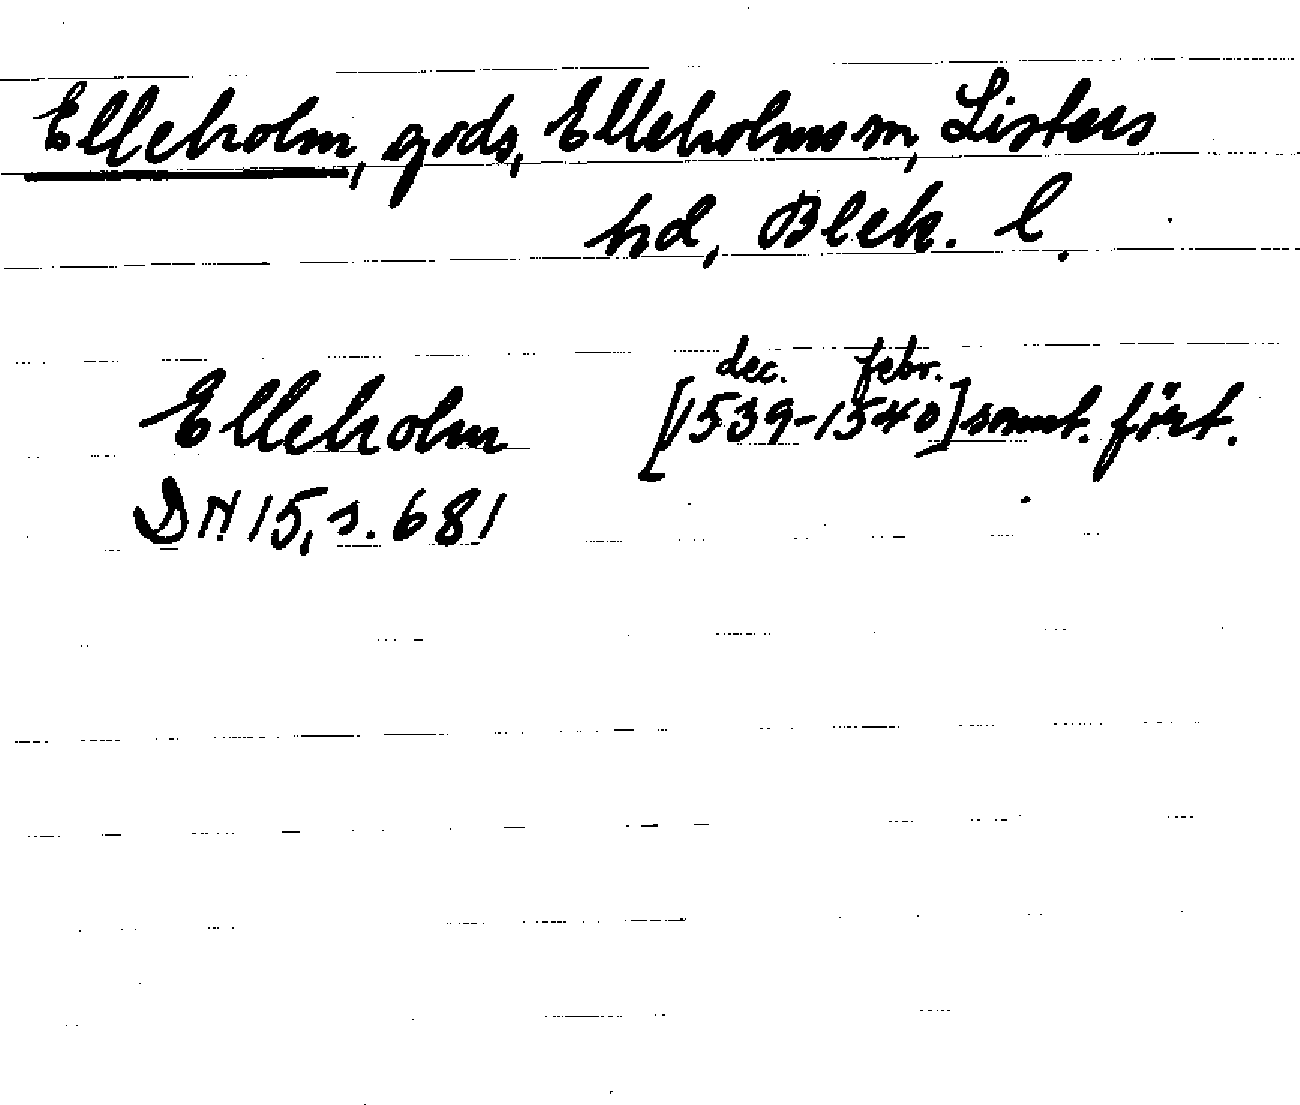 Elleholm, gods, Elleholms sn, Listers
hd, Blek. l.
dec. febr.
Elleholm [1539-1540] samt. fört.
DN 15, s. 681